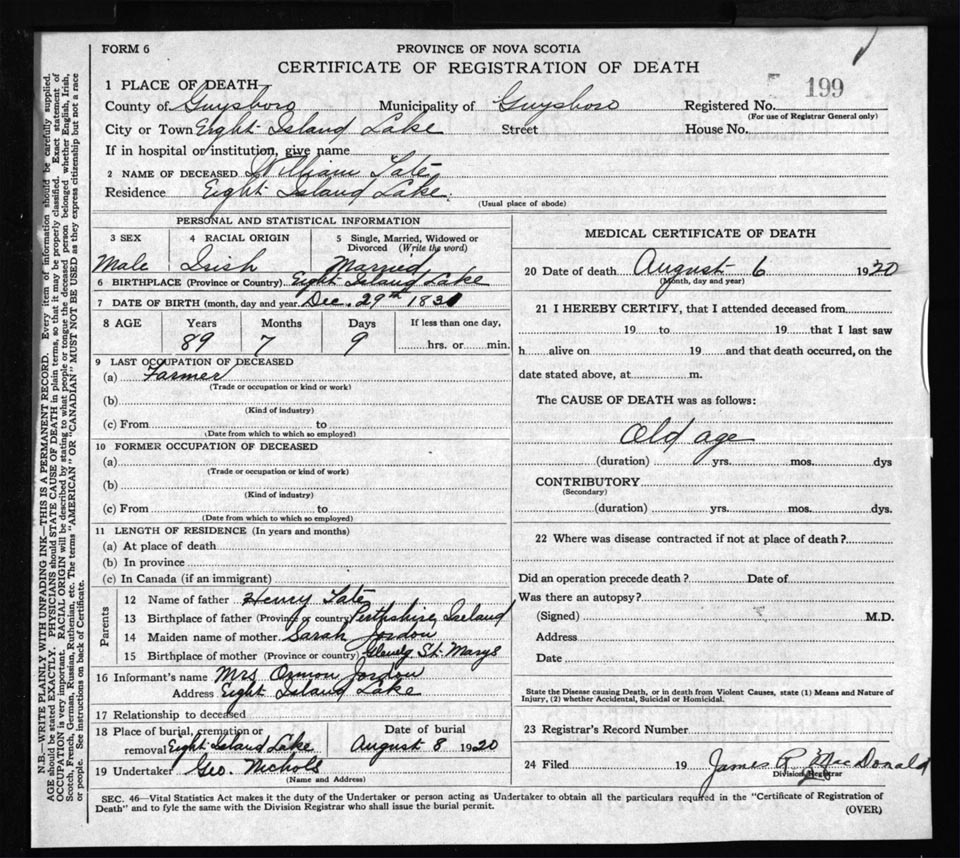 FORM 6
PROVINCE OF NOVA SCOTIA
CERTIFICATE OF REGISTRATION OF DEATH
199
1 PLACE OF DEATH
County of Guysboro Municipality of Guysboro Registered No.
(For use of Registrar General only)
City or Town Eight Island Lake Street House No.
If in hospital or institution, give name
2 NAME OF DECEASED William Tate
Residence Eight Island Lake.
(Usual place of abode)
PERSONAL AND STATISTICAL INFORMATION
3 SEX 4 RACIAL ORIGIN 5 Single, Married, Widowed or Divorced (Write the word)
Male Irish Married
6 BIRTHPLACE (Province or Country) Eight Island Lake
7 DATE OF BIRTH (month, day and year) Dec. 29th 1831
8 AGE Years Months Days If less than one day,
89 7 9 hrs. or min.
9 LAST OCCUPATION OF DECEASED
(a) Farmer
(Trade or occupation or kind or work)
(b)
(Kind of industry)
(c) From to
(Date from which to which so employed)
10 FORMER OCCUPATION OF DECEASED
(a)
(Trade or occupation or kind of work)
(b)
(Kind of industry)
(c) From to
(Date from which to which so employed)
11 LENGTH OF RESIDENCE (In years and months)
(a) At place of death
(b) In province
(c) In Canada (if an immigrant)
Parents
12 Name of father Henry Tate
13 Birthplace of father (Province or country) Perthshire, Ireland
14 Maiden name of mother Sarah Jordon
15 Birthplace of mother (Province or country) St. Marys
16 Informant's name Mrs Ormon Jordon
Address Eight Island Lake
17 Relationship to deceased
18 Place of burial, cremation or removal Eight Island Lake Date of burial August 8 1920
19 Undertaker Geo. Nichols
(Name and Address)
MEDICAL CERTIFICATE OF DEATH
20 Date of death August 6 1920
(Month, day and year)
21 I HEREBY CERTIFY, that I attended deceased from
19 to 19 that I last saw
h alive on 19 and that death occurred, on the
date stated above, at m.
The CAUSE OF DEATH was as follows:
Old age
(duration) yrs. mos. dys
CONTRIBUTORY
(Secondary)
(duration) yrs. mos. dys.
22 Where was disease contracted if not at place of death?
Did an operation precede death? Date of
Was there an autopsy?
(Signed) M.D.
Address
Date
State the Disease causing Death, or in death from Violent Causes, state (1) Means and Nature of
Injury, (2) whether Accidental, Suicidal or Homicidal.
23 Registrar's Record Number
24 Filed 19 James R. MacDonald
Division Registrar
SEC. 46—Vital Statistics Act makes it the duty of the Undertaker or person acting as Undertaker to obtain all the particulars required in the "Certificate of Registration of
Death" and to fyle the same with the Division Registrar who shall issue the burial permit.
(OVER)
N.B.—WRITE PLAINLY WITH UNFADING INK—THIS IS A PERMANENT RECORD. Every item of information should be carefully supplied.
AGE should be stated EXACTLY. PHYSICIANS should STATE CAUSE OF DEATH in plain terms, so that it may be properly classified. Exact statement of
OCCUPATION is very important. RACIAL ORIGIN will be described by stating to what people or tongue the deceased person belonged whether English, Irish,
Scotch, French, German, Russian, Ruthenian, etc. The terms "AMERICAN" OR "CANADIAN" MUST NOT BE USED as they express citizenship but not a race
or people. See instructions on back of Certificate.